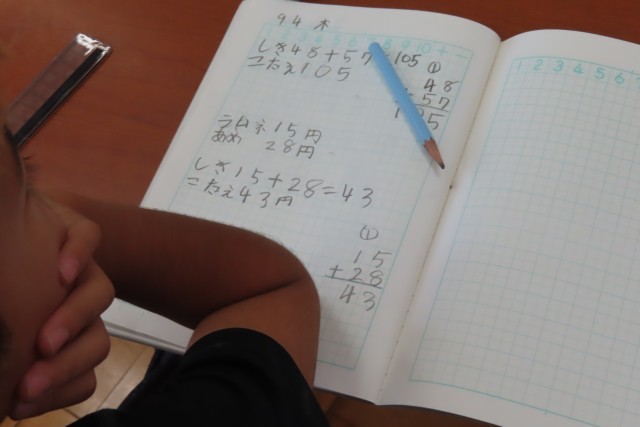 9 4 木
1 2 3 4 5 6 7 8 9 10 + -
しき48+57 105
こたえ105
①
48
57
105
ラムネ15円
あめ 28円
しき15+28=43
こたえ43円
①
15
+28
43
1 2 3 4 5 6